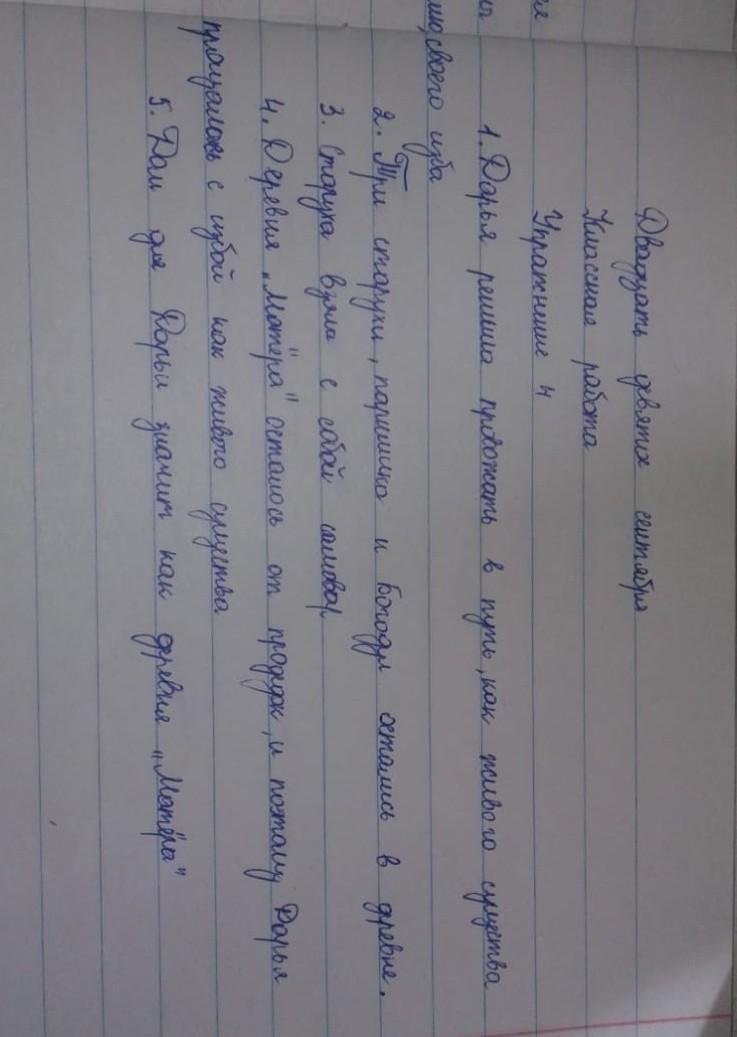 Двадцать девятое сентября
Классная работа
Упражнение 4
1. Дарья решила провожать в путь, как живого существа
своего изба
2. Три старухи, паришка и Богодул остались в деревне.
3. Старуха взяла с собой самовар
4. Деревня „Матёра" осталось от продедок, и поэтому Дарья
прощалась с избой как живого существа
5. Дом для Дарьи значит как деревня „Матёра"